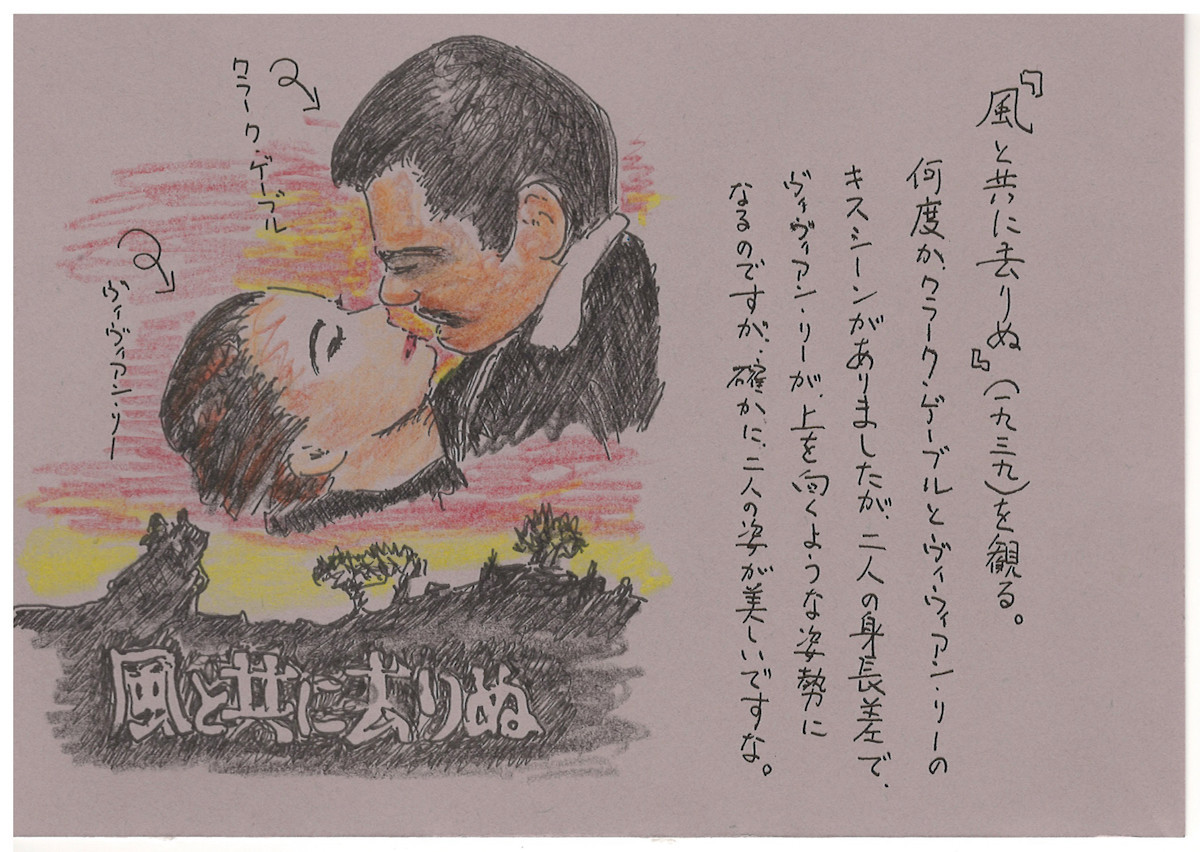 『風と共に去りぬ』(一九三九)を観る。
何度か、クラーク・ゲーブルとヴィヴィアン・リーの
キスシーンがありましたが、二人の身長差で、
ヴィヴィアン・リーが、上を向くような姿勢に
なるのですが、確かに、二人の姿が美しいですな。
クラーク・ゲーブル
ヴィヴィアン・リー
風と共に去りぬ